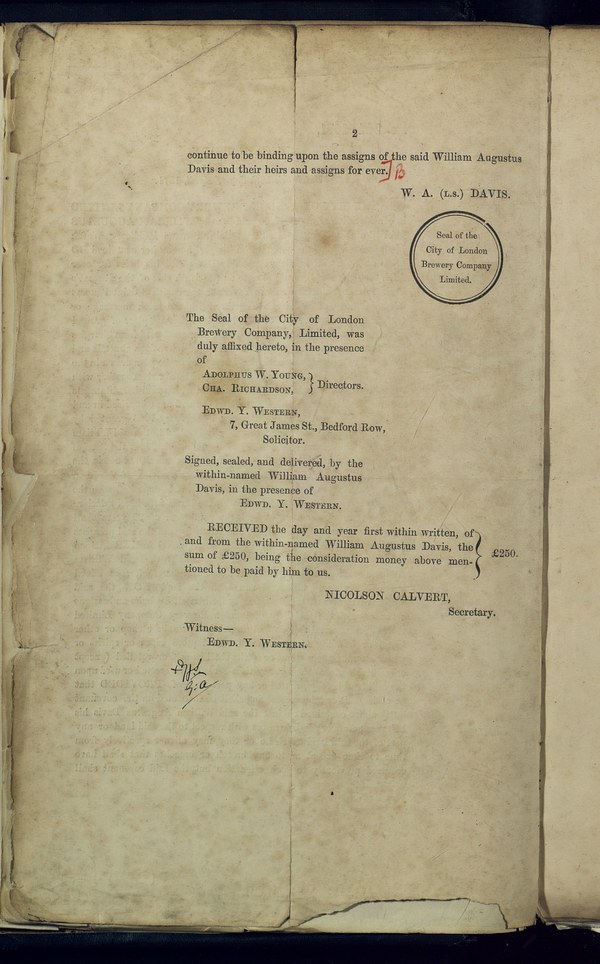 2
continue to be binding upon the assigns of the said William Augustus
Davis and their heirs and assigns for ever.] B
W. A. (L.S.) DAVIS.
Seal of the
City of London
Brewery Company
Limited.
The Seal of the City of London
Brewery Company, Limited, was
duly affixed hereto, in the presence
of
ADOLPHUS W. YOUNG,
CHA. RICHARDSON, } Directors.
EDWD. Y. WESTERN,
7, Great James St., Bedford Row,
Solicitor.
Signed, sealed, and delivered, by the
within-named William Augustus
Davis, in the presence of
EDWD. Y. WESTERN.
RECEIVED the day and year first within written, of
and from the within-named William Augustus Davis, the
sum of £250, being the consideration money above men-
tioned to be paid by him to us. } £250.
NICOLSON CALVERT,
Secretary.
Witness—
EDWD. Y. WESTERN.